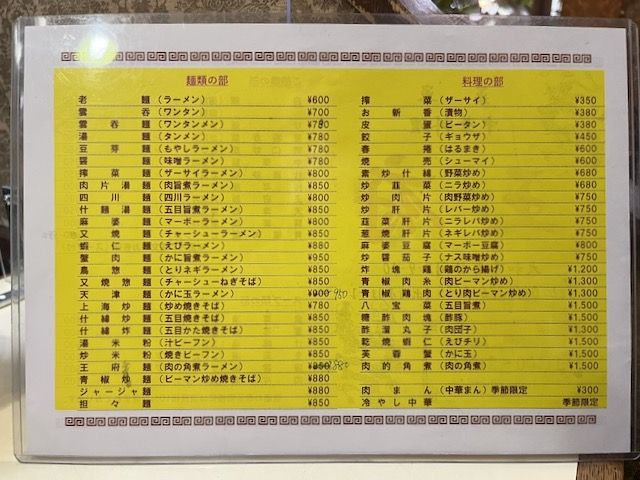 麺類の部
老麺(ラーメン) ¥600
雲呑(ワンタン) ¥700
雲呑麺(ワンタンメン) ¥780
湯麺(タンメン) ¥780
豆芽麺(もやしラーメン) ¥780
醤麺(味噌ラーメン) ¥780
搾菜麺(ザーサイラーメン) ¥800
肉片湯麺(肉旨煮ラーメン) ¥850
四川麺(四川ラーメン) ¥800
什麺湯麺(五目旨煮ラーメン) ¥850
麻婆麺(マーボーラーメン) ¥800
叉焼麺(チャーシューラーメン) ¥850
蝦仁麺(えびラーメン) ¥880
蟹肉麺(かに旨煮ラーメン) ¥950
鳥惣麺(とりネギラーメン) ¥850
叉焼惣麺(チャーシューねぎそば) ¥850
天津麺(かに玉ラーメン) ¥900 950
上海炒麺(炒め焼きそば) ¥780
什綿炒麺(五目焼きそば) ¥850
什綿炸麺(五目かた焼きそば) ¥850
湯米粉(汁ビーフン) ¥850
炒米粉(焼きビーフン) ¥850
王府麺(肉の角煮ラーメン)
青椒炒麺(ピーマン炒め焼きそば) ¥880
ジャージャ麺 ¥880
担々麺 ¥850
料理の部
搾菜(ザーサイ) ¥350
お新香(漬物) ¥380
皮蛋(ピータン) ¥380
餃子(ギョウザ) ¥450
春捲(はるまき) ¥600
焼売(シューマイ) ¥600
素炒什綿(野菜炒め) ¥680
炒韮菜(ニラ炒め) ¥680
炒肉片(肉野菜炒め) ¥750
炒肝片(レバー炒め) ¥750
韮菜肝片(ニラレバ炒め) ¥750
葱焼肝片(ネギレバ炒め) ¥750
麻婆豆腐(マーボー豆腐) ¥800
炒醤茄子(ナス味噌炒め) ¥750
炸塊鶏(鶏のから揚げ) ¥1,200
青椒肉糸(肉ピーマン炒め) ¥1,300
青椒鶏肉(とり肉ピーマン炒め) ¥1,300
八宝菜(五目旨煮) ¥1,300
糖酢肉塊(酢豚) ¥1,500
酢溜丸子(肉団子) ¥1,300
乾焼蝦仁(えびチリ) ¥1,500
芙蓉蟹(かに玉) ¥1,500
肉的角煮(肉の角煮) ¥1,500
肉まん(中華まん)季節限定 ¥300
冷やし中華 季節限定